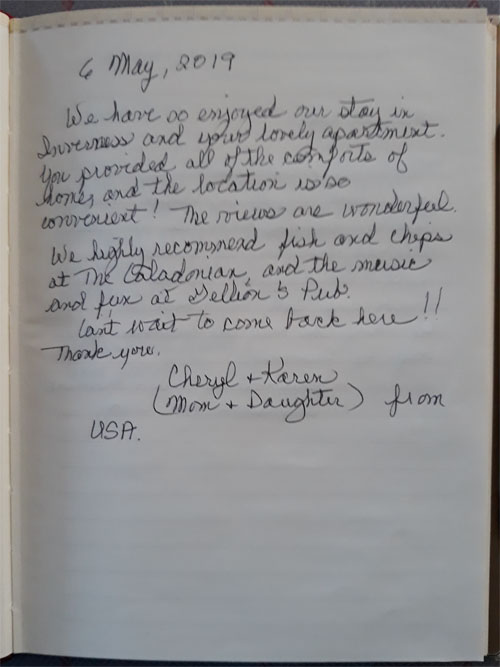 6 May, 2019
We have so enjoyed our stay in
Inverness and your lovely apartment.
You provided all of the comforts of
home, and the location is so
convenient! The views are wonderful.
We highly recommend fish and chips
at The Caladonian, and the music
and fun at Gellion's Pub.
Can't wait to come back here!!
Thank you.
Cheryl + Karen
(Mom + Daughter) from
USA.